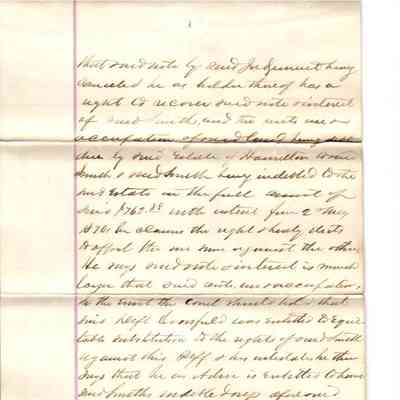 that said note by said Judgment being
canceled he as holder thereof has a
right to recover said note & interest
of said Smith, and the rents use &
occupation of said land being not
due by said Estate of Hamilton &
Smith & said Smith being indebted to the
said Estate in the full amount of
said $762. with interest from 2 May
he claims the right & hereby elects
to offset the one sum against the other
He says said note & interest is much
larger than said rents use & occupation.
In the event the Court should hold that
this Deft was entitled to Equi
table substitution to the rights of said Smith
against this Plff & his intestate he then
says that he as Admr is entitled to have
said Smiths indebtedness aforesaid